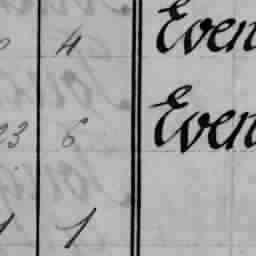 4 Even
23 6 Even
1 1